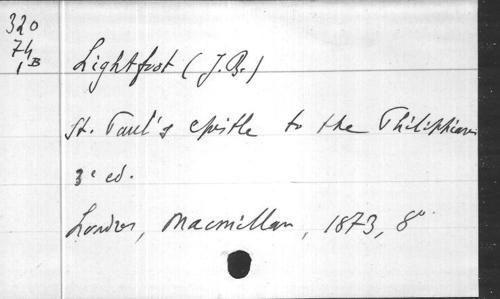 320
74
1B
Lightfoot (J.B.)
St. Paul's epistle to the Philippians
3e ed.
Londres, Macmillan, 1873, 8°.